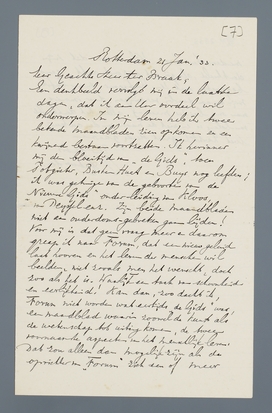 [7]
Rotterdam 21 Jan. '33.
Zeer Geachte Heer ter Braak,
Een denkbeeld vervolgt mij in de laatste
dagen, dat ik aan Uw oordeel wil
onderwerpen. In mijn leven heb ik twee
bekende maandblaaden zien opkomen en een
kwijnend bestaan voortzetten. Ik herinner
mij den bloeitijd van "de Gids", toen
Potgieter, Busken Huet en Buys nog leefden;
ik was getuige van de geboorte van de
"Nieuwe Gids" onder leiding van Kloos,
van Deyssel enz. Zij beide maandbladen
niet aan ouderdomsgebreken gaan lijden?
Voor mij is dat geen vraag meer en daarom
greep ik naar Forum, dat een nieuw geluid
laat hooren en het leven de menschen wil
beelden, niet zooals men het wenscht, doch
zoo als het is. Waarlijk een boek van
en eerlijkheid! Kan dan, zoo dacht ik
Forum niet worden wat eertijds de Gids was,
een maandblad waarin zoowel de kunst als
de wetenschap tot uiting komen, de twee
voornaamste aspecten in het menschelijk leven.
Dat zou alleen dan mogelijk zijn als de
oprichters van Forum dat een of meer